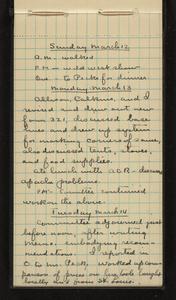 Sunday March 12
A.M. - walked
P.M. - wild west show
Eve. - to Pecks for dinner
Monday March 13
Allison, Calkins, and I
revised and drew out new
form 321, discussed base
lines and drew up system
for marking corners of same,
also discussed tents, stoves,
and food supplies.
Ate lunch with
apache problems.
P.M. - Committee continued
work on the above.
Tuesday March 14
Committee adjourned just
before noon, after writing
memo. embodying recom-
mend above. I reported in
O to Mr. Peck, worked up com-
parison of prices on
locally and from St. Louis.